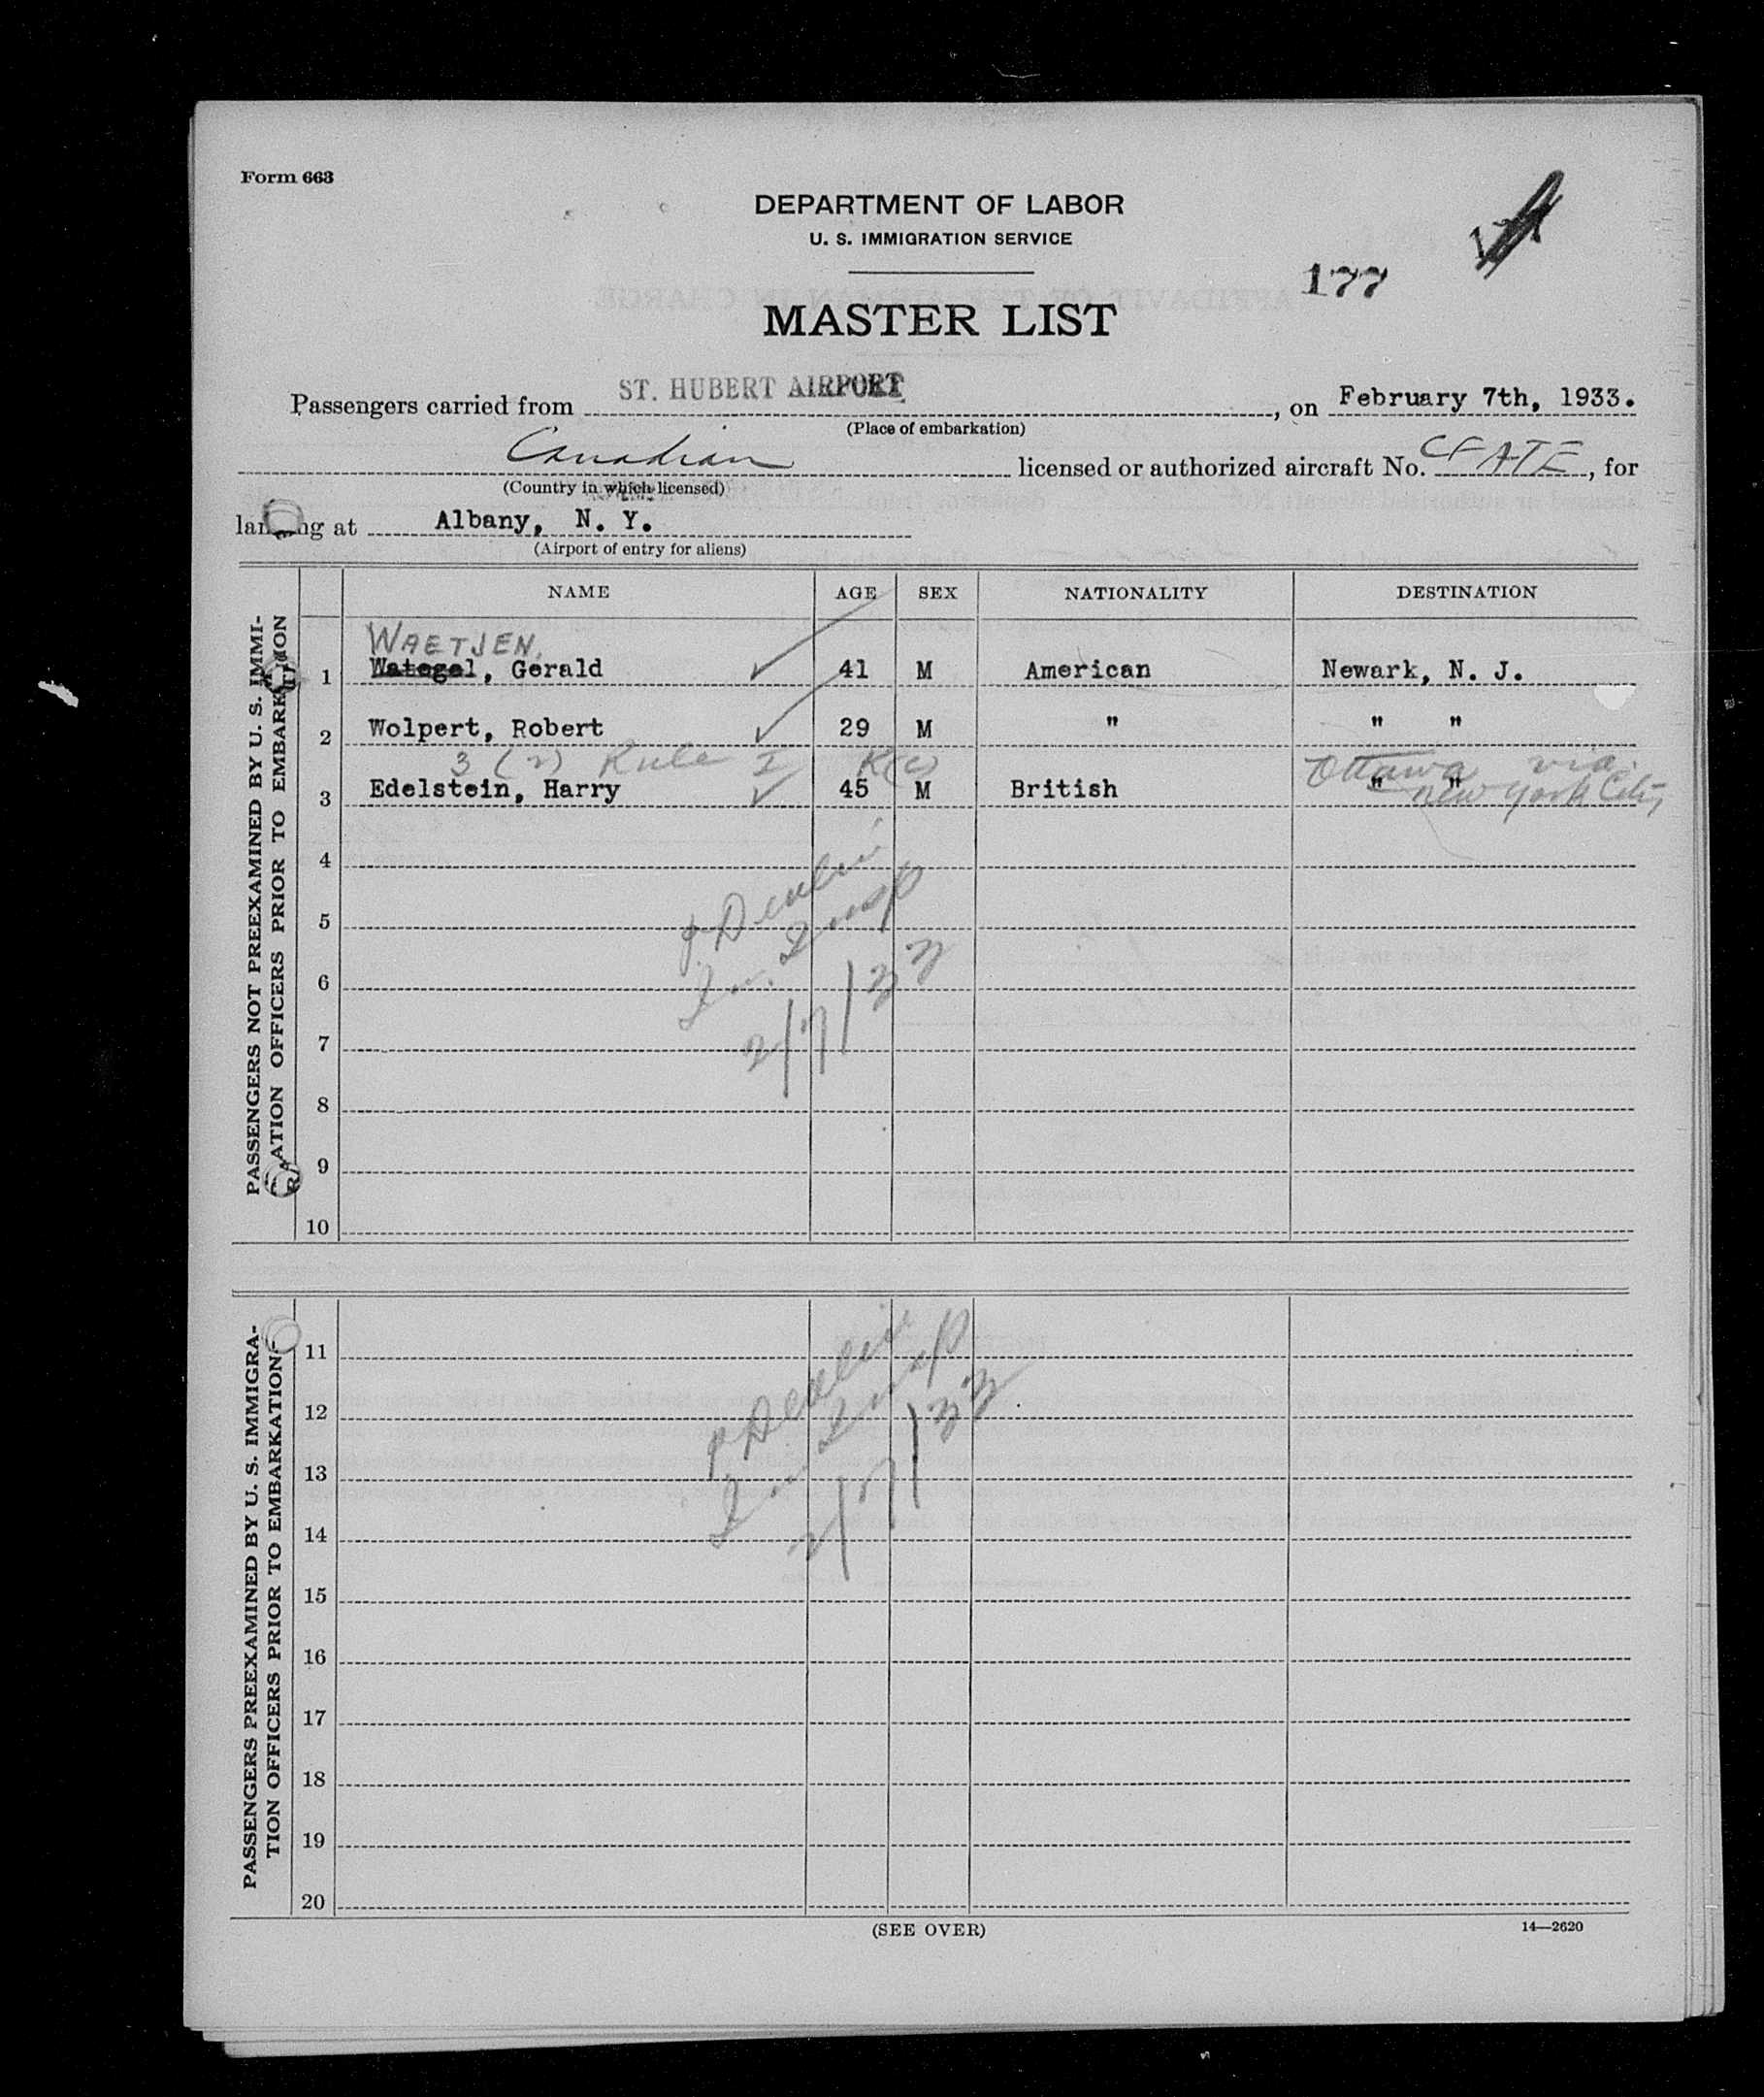 Form 663
DEPARTMENT OF LABOR
U. S. IMMIGRATION SERVICE
177
MASTER LIST
Passengers carried from ST. HUBERT AIRPORT, on February 7th, 1933.
(Place of embarkation)
Canadian licensed or authorized aircraft No. CFATE, for
(Country in which licensed)
landing at Albany, N. Y.
(Airport of entry for aliens)
PASSENGERS NOT PREEXAMINED BY U. S. IMMI-
GRATION OFFICERS PRIOR TO EMBARKATION
NAME AGE SEX NATIONALITY DESTINATION
WAETJEN,
1 Wategel, Gerald 41 M American Newark, N. J.
2 Wolpert, Robert 29 M " " "
3 (2) Rule I K(c) Ottawa via
3 Edelstein, Harry 45 M British " " New York City
4
5
Im. Insp
6
2/7/33
7
8
9
10
PASSENGERS PREEXAMINED BY U. S. IMMIGRA-
TION OFFICERS PRIOR TO EMBARKATION
11
12
Im. Insp
13
2/7/33
14
15
16
17
18
19
20
(SEE OVER)
14—2620